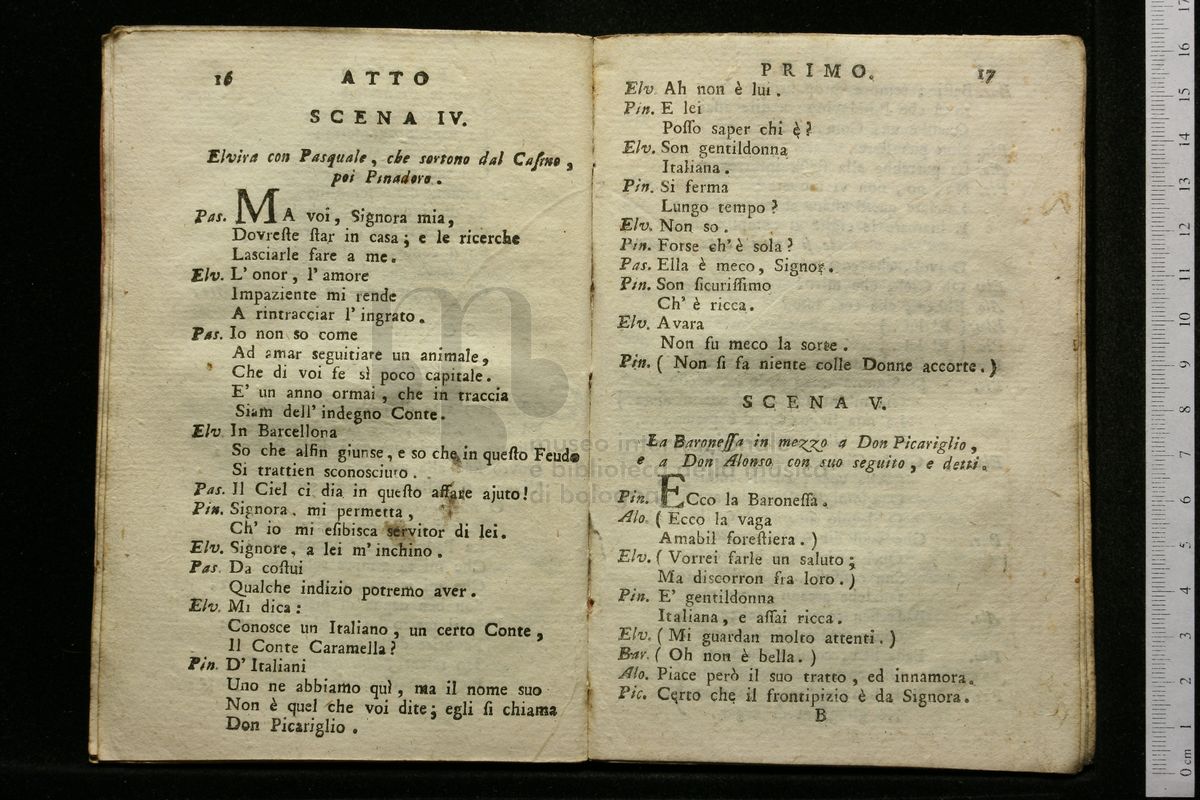 16 ATTO
SCENA IV.
Elvira con Pasquale, che sortono dal Casino,
poi Pinadoro.
Pas. MA voi, Signora mia,
Dovreſte ſtar in casa; e le ricerche
Lasciarle fare a me.
Elv. L' onor, l' amore
Impaziente mi rende
A rintracciar l' ingrato.
Pas. Io non so come
Ad amar seguitiate un animale,
Che di voi fe sì poco capitale.
E' un anno ormai, che in traccia
Siam dell' indegno Conte.
Elv. In Barcellona
So che alfin giunse, e so che in queſto Feudo
Si trattien sconosciuto.
Pas. Il Ciel ci dia in queſto affare ajuto!
Pin. Signora, mi permetta,
Ch' io mi eſibisca servitor di lei.
Elv. Signore, a lei m' inchino.
Pas. Da coſtui
Qualche indizio potremo aver.
Elv. Mi dica:
Conosce un Italiano, un certo Conte,
Il Conte Caramella?
Pin. D' Italiani
Uno ne abbiamo quì, ma il nome suo
Non è quel che voi dite; egli ſi chiama
Don Picariglio.
PRIMO. 17
Elv. Ah non è lui.
Pin. E lei
Poſſo saper chi è?
Elv. Son gentildonna
Italiana.
Pin. Si ferma
Lungo tempo?
Elv. Non so.
Pin. Forse ch' è sola?
Pas. Ella è meco, Signor.
Pin. Son ſicuriſſimo
Ch' è ricca.
Elv. Avara
Non fu meco la sorte.
Pin. ( Non ſi fa niente colle Donne accorte. )
SCENA V.
La Baroneſſa in mezzo a Don Picariglio,
e a Don Alonso con suo seguito, e detti.
Pin. ECco la Baroneſſa.
Alo. ( Ecco la vaga
Amabil foreſtiera. )
Elv. ( Vorrei farle un saluto;
Ma discorron fra loro. )
Pin. E' gentildonna
Italiana, e aſſai ricca.
Elv. ( Mi guardan molto attenti. )
Bar. ( Oh non è bella. )
Alo. Piace però il suo tratto, ed innamora.
Pic. Certo che il frontipizio è da Signora.
B